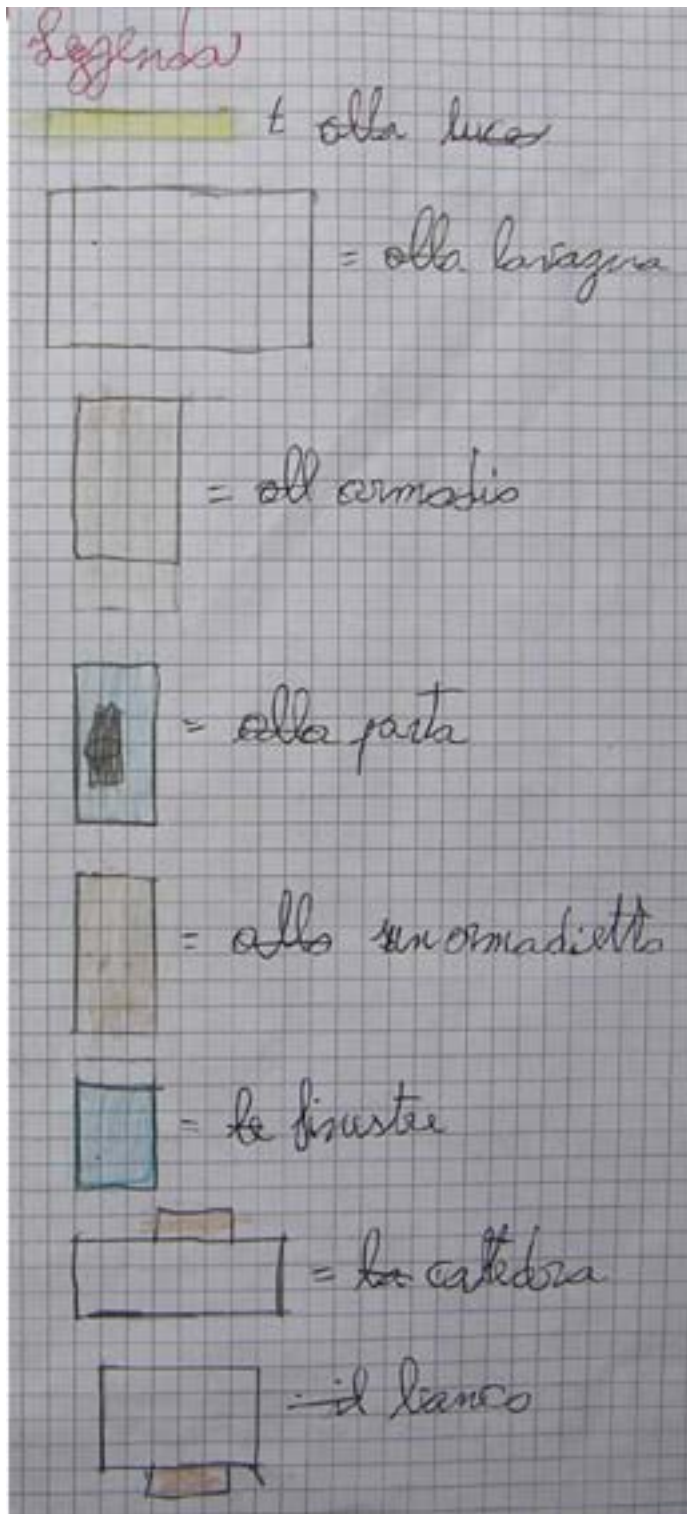 Legenda
= alla luce
= alla lavagna
= all armadio
= alla porta
= allo un armadietto
= le finestre
= la cattedra
= il banco